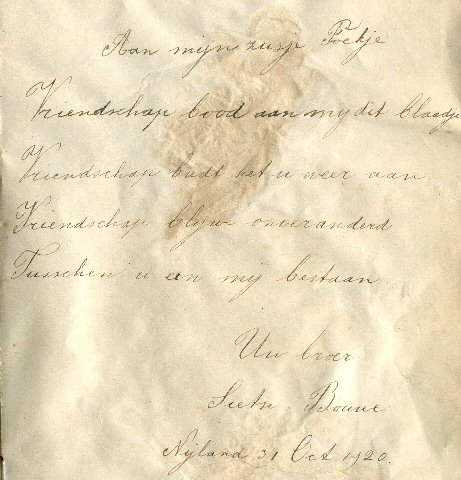 Aan mijn zusje Foekje
Vriendschap bood aan mij dit blaadje
Vriendschap biedt het u weer aan
Vriendschap blijve onveranderd
Tusschen u en mij bestaan.
Uw broer
Sietse Bouwe
Nijland 31 Oct 1920.